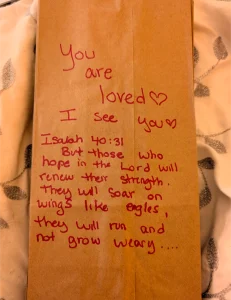 You
are
loved♡
I see you♡
Isaiah 40:31
But those who
hope in the Lord will
renew their strength.
They will soar on
wings like eagles,
they will run and
not grow weary....